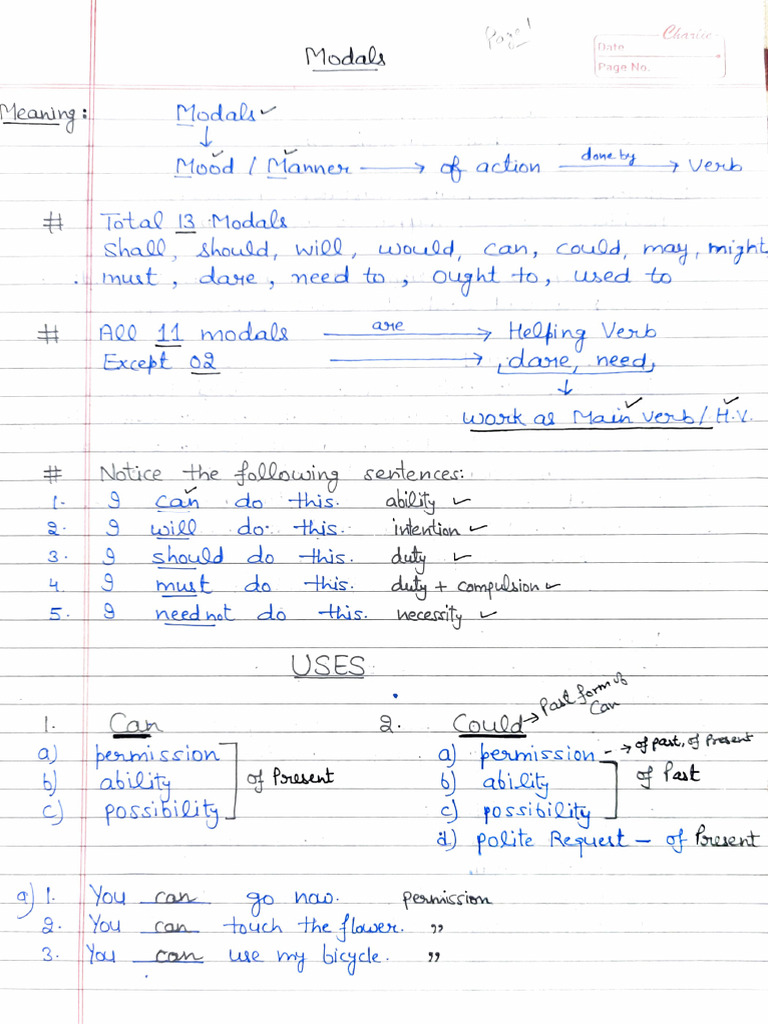 Page 1
Charlie
Date
Page No.
Modals
Meaning: Modals ✓
↓
Mood / Manner → of action done by → Verb
# Total 13 Modals
Shall, should, will, would, can, could, may, might
must, dare, need to, ought to, used to
# All 11 modals are → Helping Verb
Except 02 → dare, need,
↓
Work as Main verb / H.V.
# Notice the following sentences:
1. I can do this. ability ✓
2. I will do this. intention ✓
3. I should do this. duty ✓
4. I must do this. duty + compulsion ✓
5. I need not do this. necessity ✓
USES
1. Can
a) permission
b) ability
c) possibility
of Present
2. Could → Past form of Can
a) permission - → of past, of Present
b) ability
c) possibility
of Past
d) polite Request - of Present
a) 1. You can go now. permission
2. You can touch the flower. ”
3. You can use my bicycle. ”